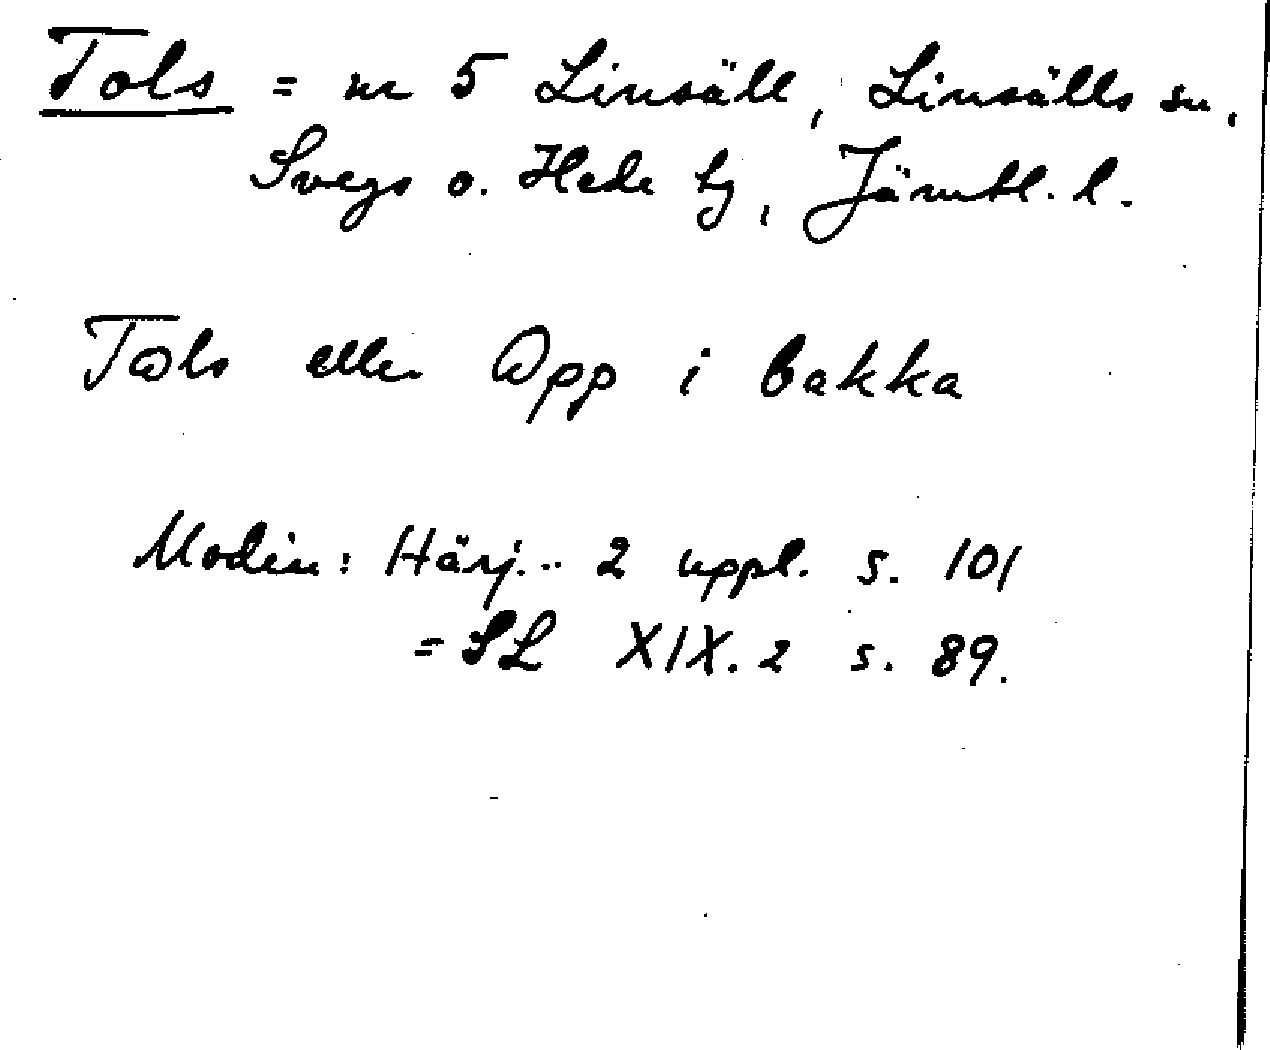 Tols = nr 5 Linsäll, Linsälls sn,
Svegs o. Hede tg, Jämtl. l.
Tols eller Opp i bakka
Modin: Härj... 2 uppl. s. 101
= SL XIX. 2 s. 89.